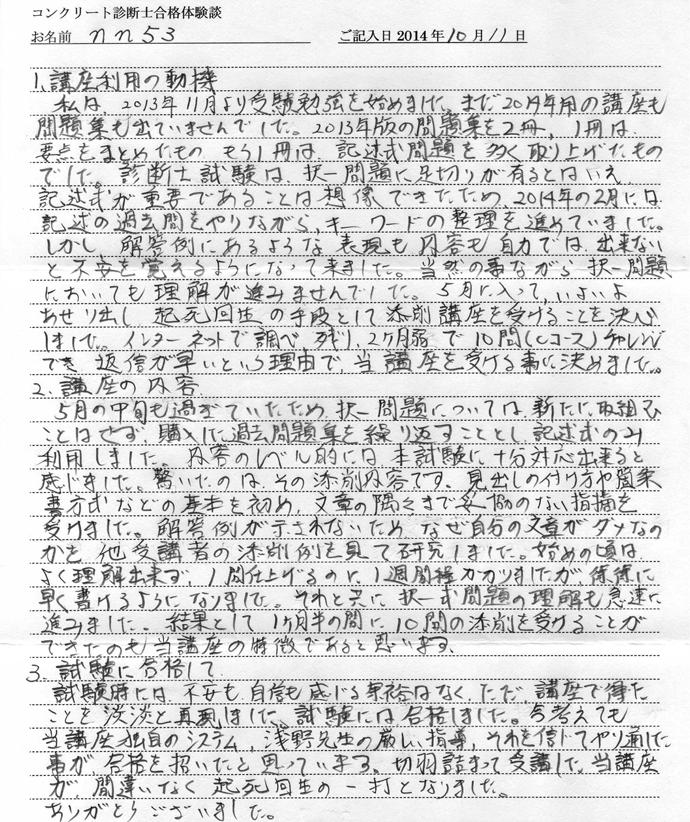 コンクリート診断士合格体験談
お名前 nn53 ご記入日 2014年10月11日
1.講座利用の動機
私は、2013年11月より受験勉強を始めました。まだ2014年用の講座も
問題集も出ていませんでした。2013年版の問題集を2冊、1冊は
要点をまとめたもの、もう1冊は、記述式問題を多く取り上げたもの
でした。診断士試験は、択一問題に足切りが有るとはいえ
記述式が重要であることは想像できたため、2014年の2月には
記述の過去問をやりながら、キーワードの整理を進めていました。
しかし、解答例にあるような表現も内容も自力では、出来ない
と不安を覚えるようになって来ました。当然の事ながら択一問題
においても理解が進みませんでした。5月に入って、いよいよ
あせり出し、起死回生の手段として添削講座を受けることを決心
しました。インターネットで調べ、残り、2ヶ月弱で10問(Cコース)チャレンジ
でき、返信が早いという理由で、当講座を受ける事に決めました。
2.講座の内容
5月の中旬も過ぎていたため、択一問題については、新たに取組む
ことはせず、購入した過去問題集を繰り返すこととし、記述式のみ
利用しました。内容のレベル的には、本試験に十分対応出来ると
感じました。驚いたのは、その添削内容です。見出しの付け方や箇条
書方式などの基本を初め、文章の隅々まで妥協のない指摘を
受けました。解答例が示されないため、なぜ自分の文章がダメなの
かを、他受講者の添削例を見て研究しました。始めの頃は、
よく理解出来ず、1問仕上げるのに、1週間程かかりましたが、徐徐に
早く書けるようになりました。それと共に、択一式問題の理解も急速に
進みました。結果として1ヶ月半の間に10問の添削を受けることが
できたのも当講座の特徴であると思います。
3.試験に合格して
試験時には、不安も自信も感じる余裕はなく、ただ、講座で得た
ことを淡淡と再現しました。試験には合格しました。今考えても
当講座独自のシステム、浅野先生の厳しい指導、それを信じてやり通した
事が、合格を招いたと思っています。切羽詰まって受講した、当講座
が、間違いなく起死回生の一打となりました。
ありがとうございました。